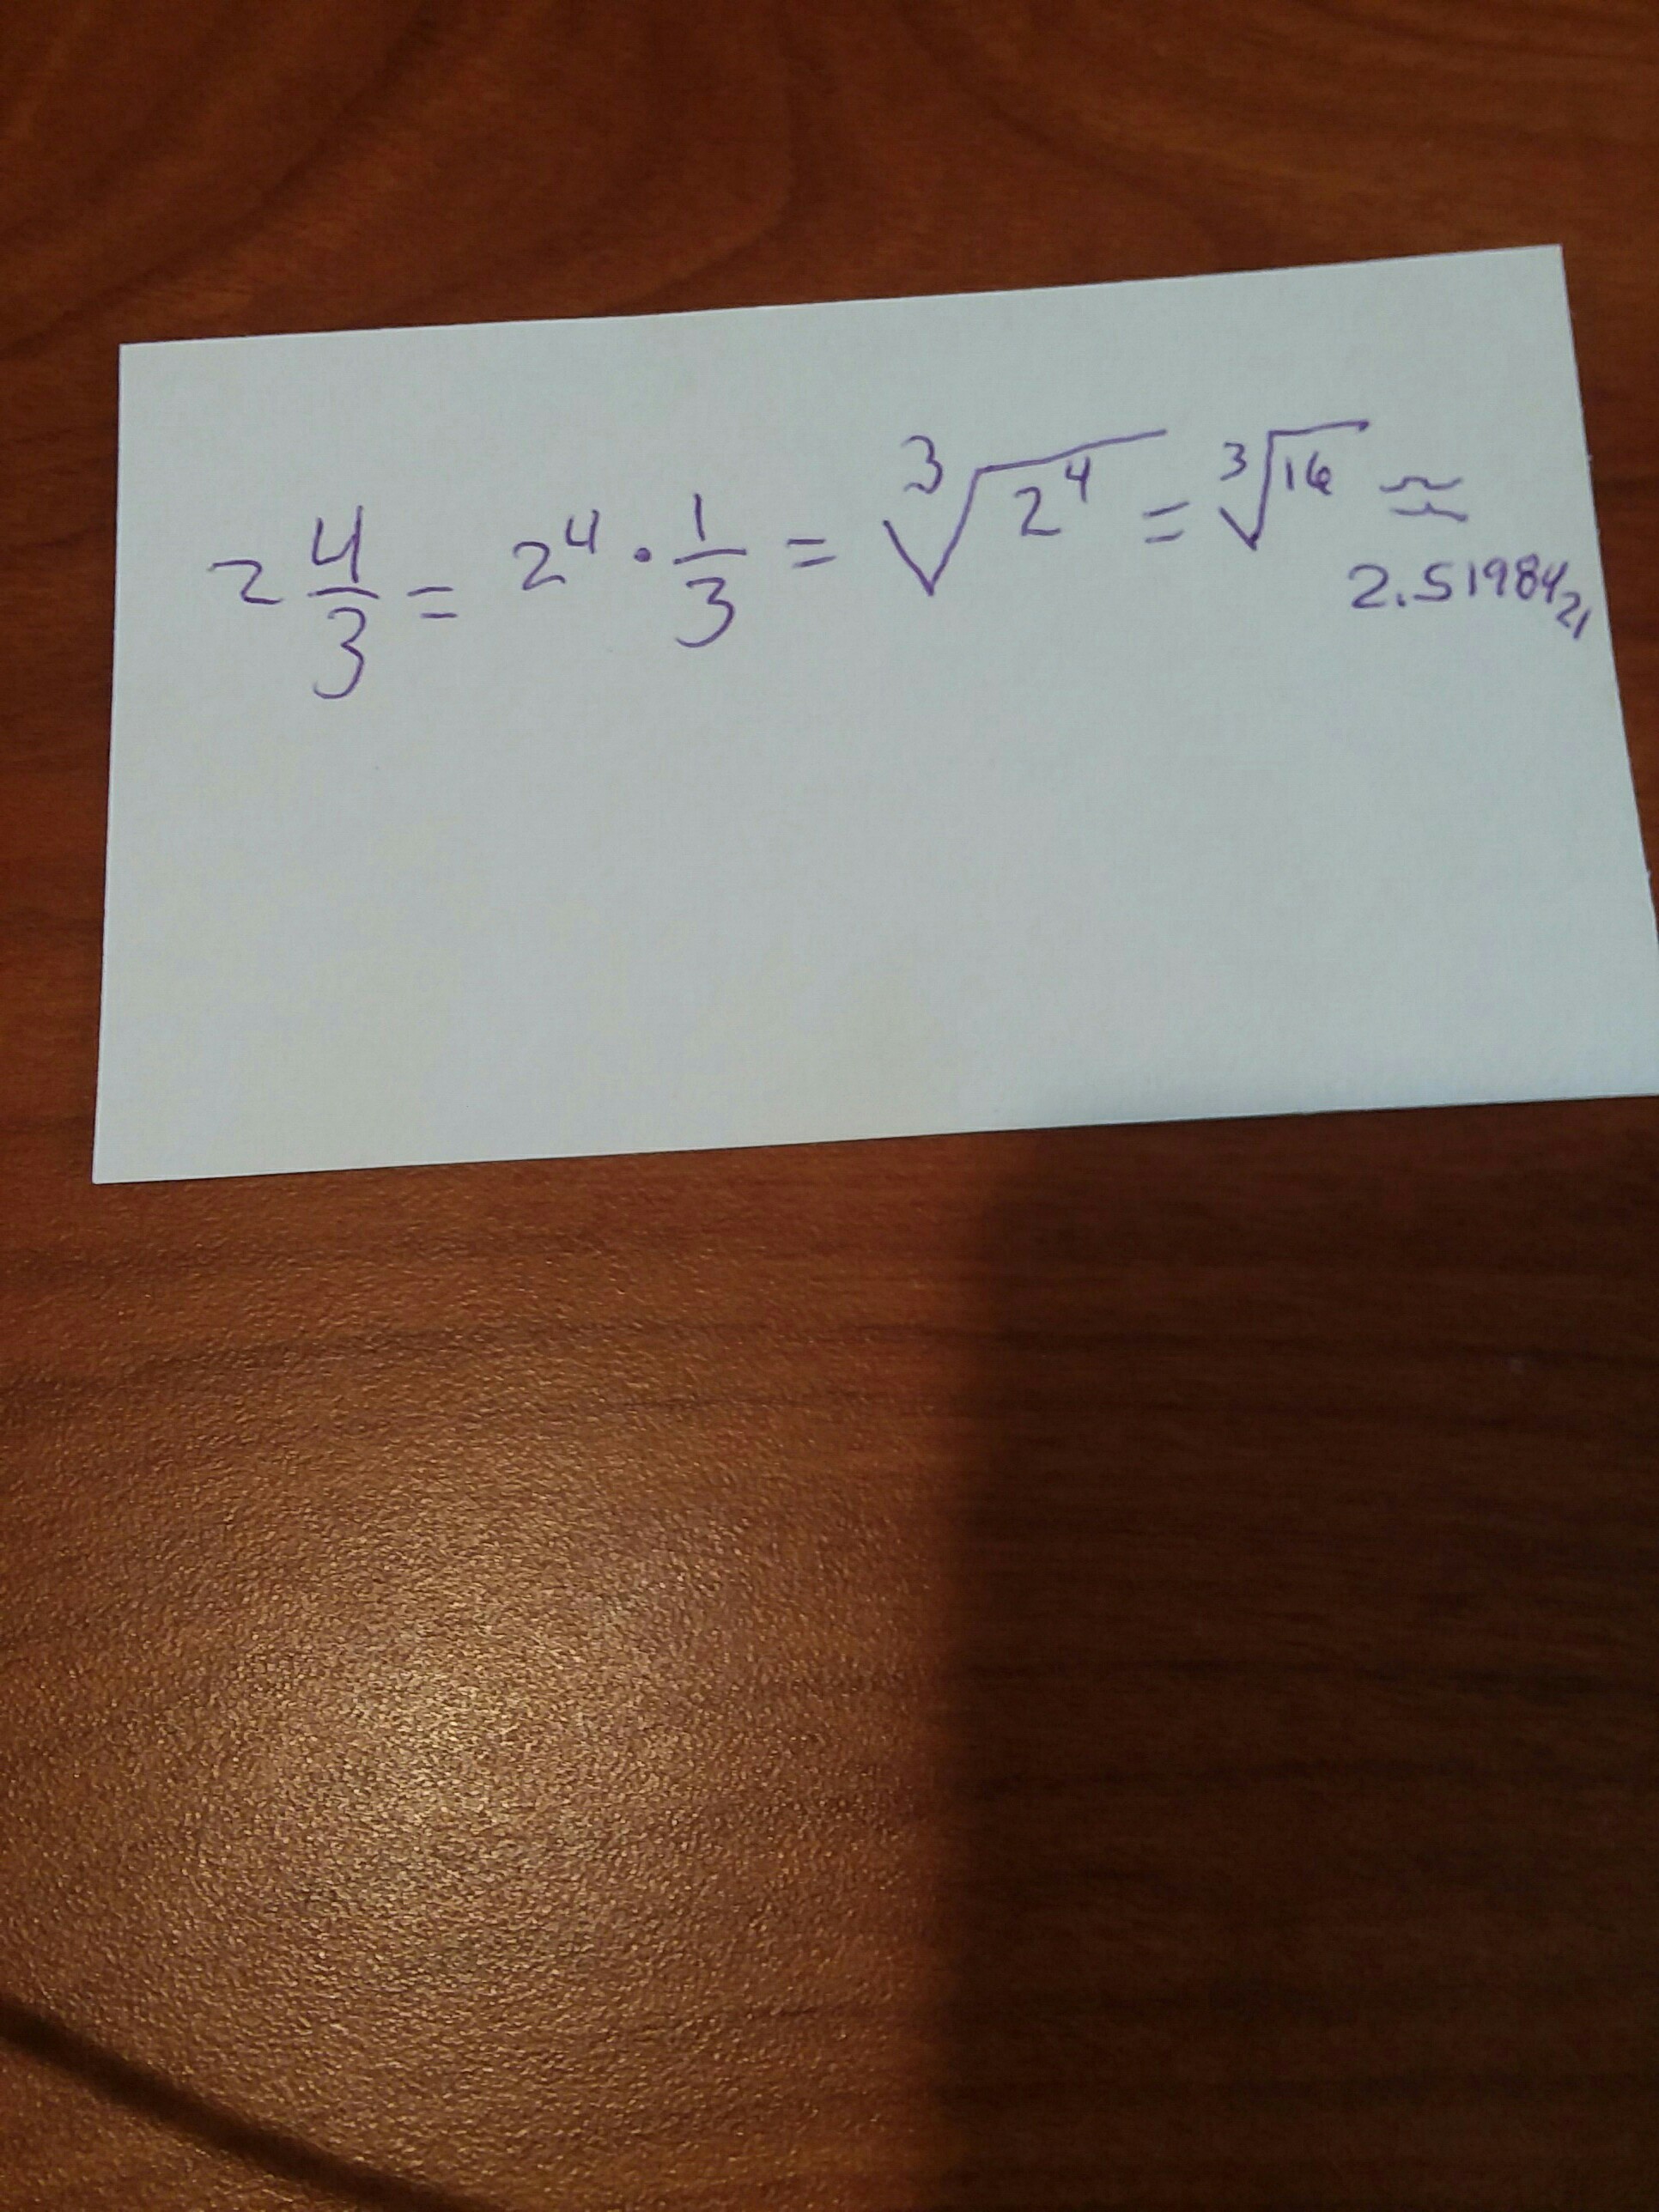 2 4/3 = 2⁴ · 1/3 = ³√2⁴ = ³√16 ≈
2.5198421